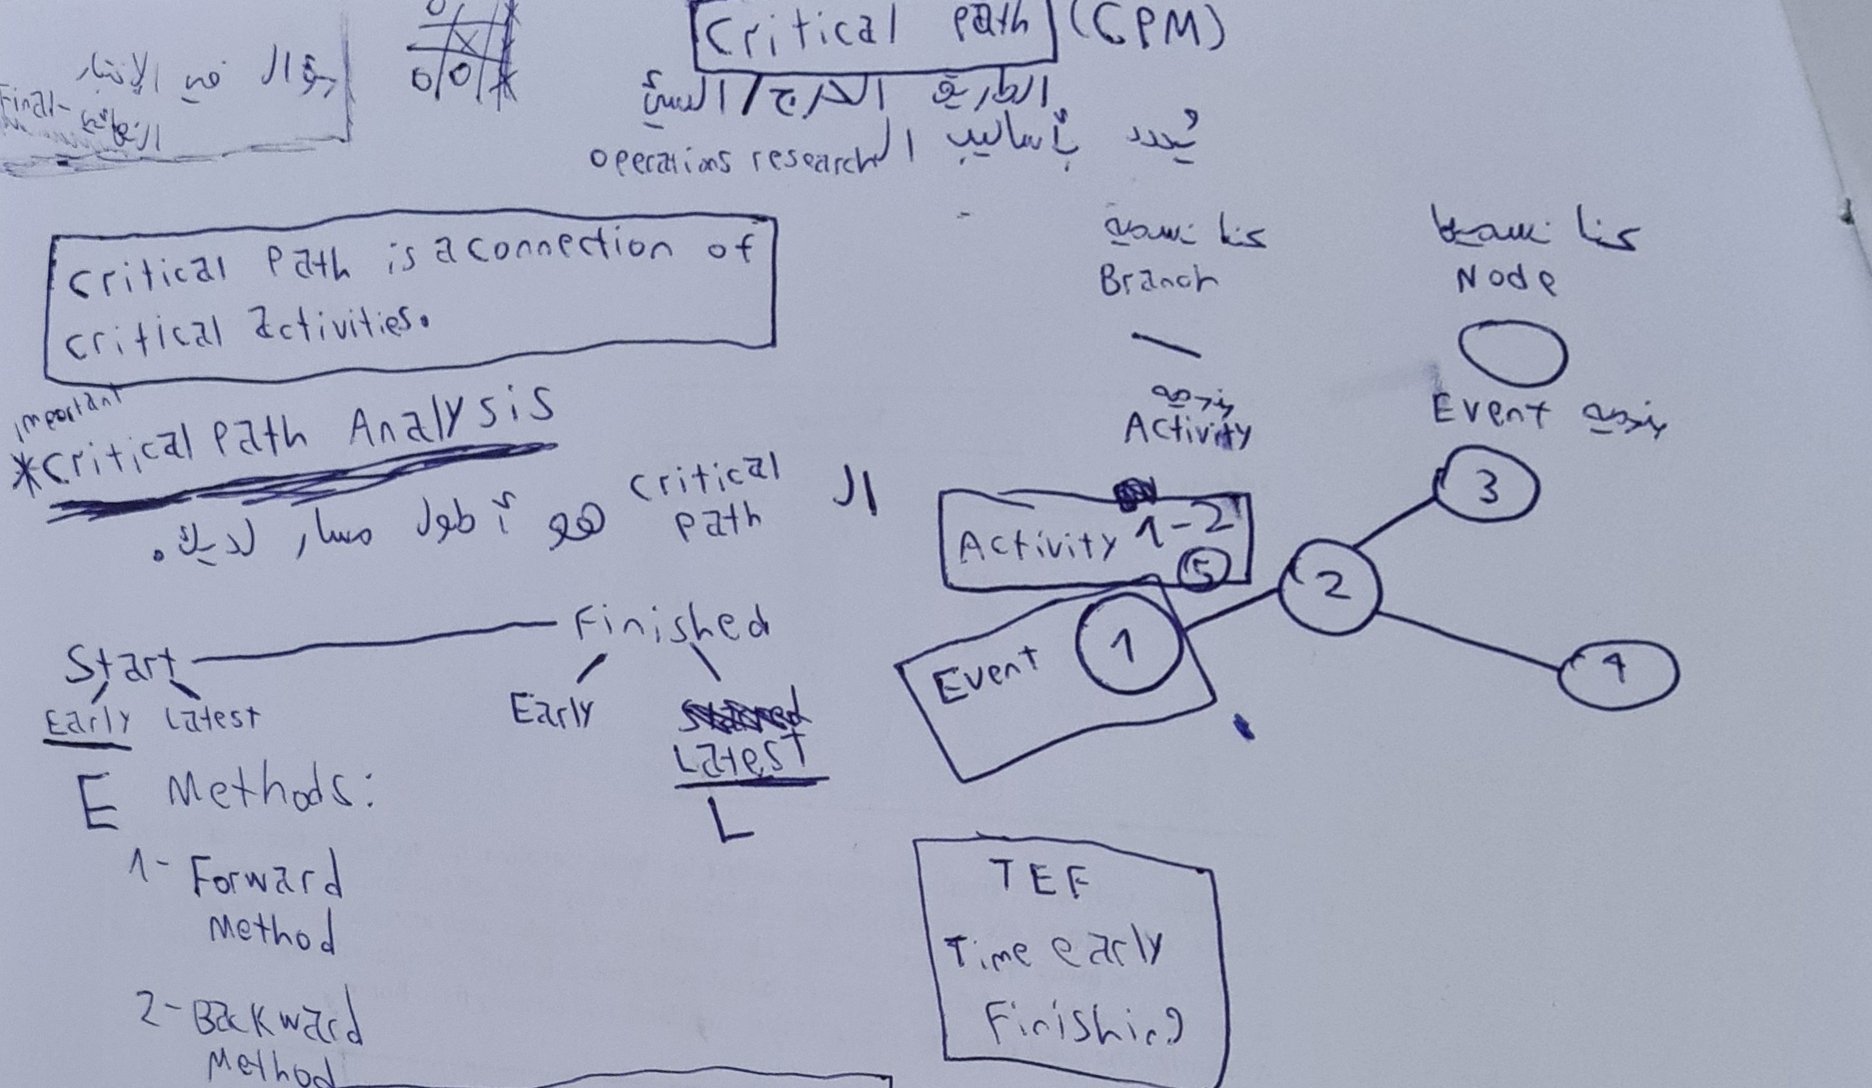 سؤال في الإختبار
Final - النهائي
Critical Path (CPM)
الطريق الحرج / السيئ
يُحدد بأساليب ال operations research
Critical Path is a connection of
critical activities.
important
*Critical Path Analysis
ال critical path هو أطول مسار لديك.
Start
Finished
Early Latest
Early
Latest
E
L
Methods:
1- Forward
Method
2- Backward
Method
كنا نسميه
Branch
Activity
كنا نسميها
Node
Event
Activity 1-2
5
Event 1
2
3
4
TEF
Time early
Finishing